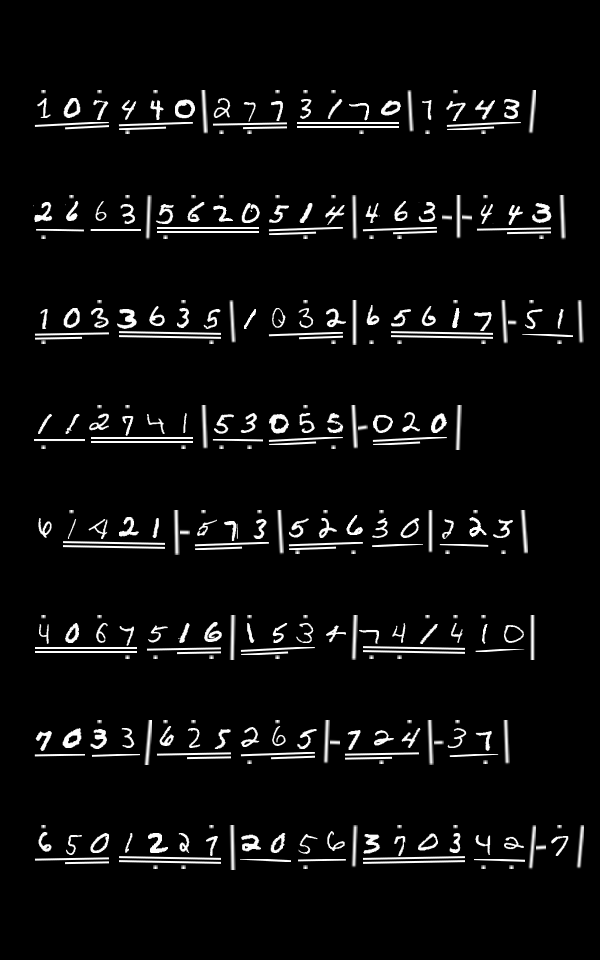 107440|2773170|7743
2663|5620514|463-|-443
1033635|1032|65617|-51
112741|53055|-020
61421|-573|52630|223
4067516|1534|741410
7033|625265|-724|-37
6501227|2056|370342|-7